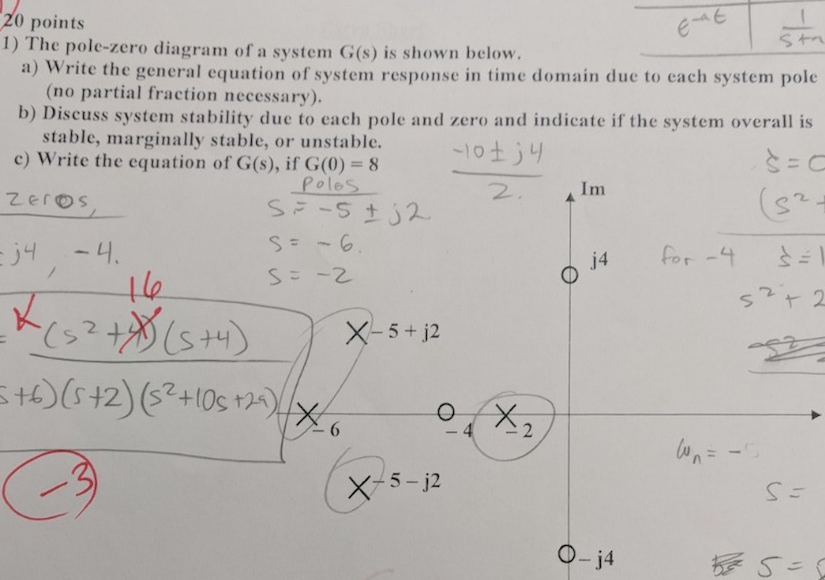 20 points
e^-at | 1/s+a
1) The pole-zero diagram of a system G(s) is shown below.
a) Write the general equation of system response in time domain due to each system pole
(no partial fraction necessary).
b) Discuss system stability due to each pole and zero and indicate if the system overall is
stable, marginally stable, or unstable.
c) Write the equation of G(s), if G(0) = 8
-10 ± j4
2.
Poles
s = -5 ± j2
s = -6
s = -2
zeros,
j4, -4.
Im
(s² +
j4
for -4
s² + 2
16
K (s² + 4) (s+4)
s+6)(s+2)(s²+10s+29)
-3
– 5 + j2
– 6
– 4
– 2
– 5 – j2
– j4
ωn = -
s =
s =